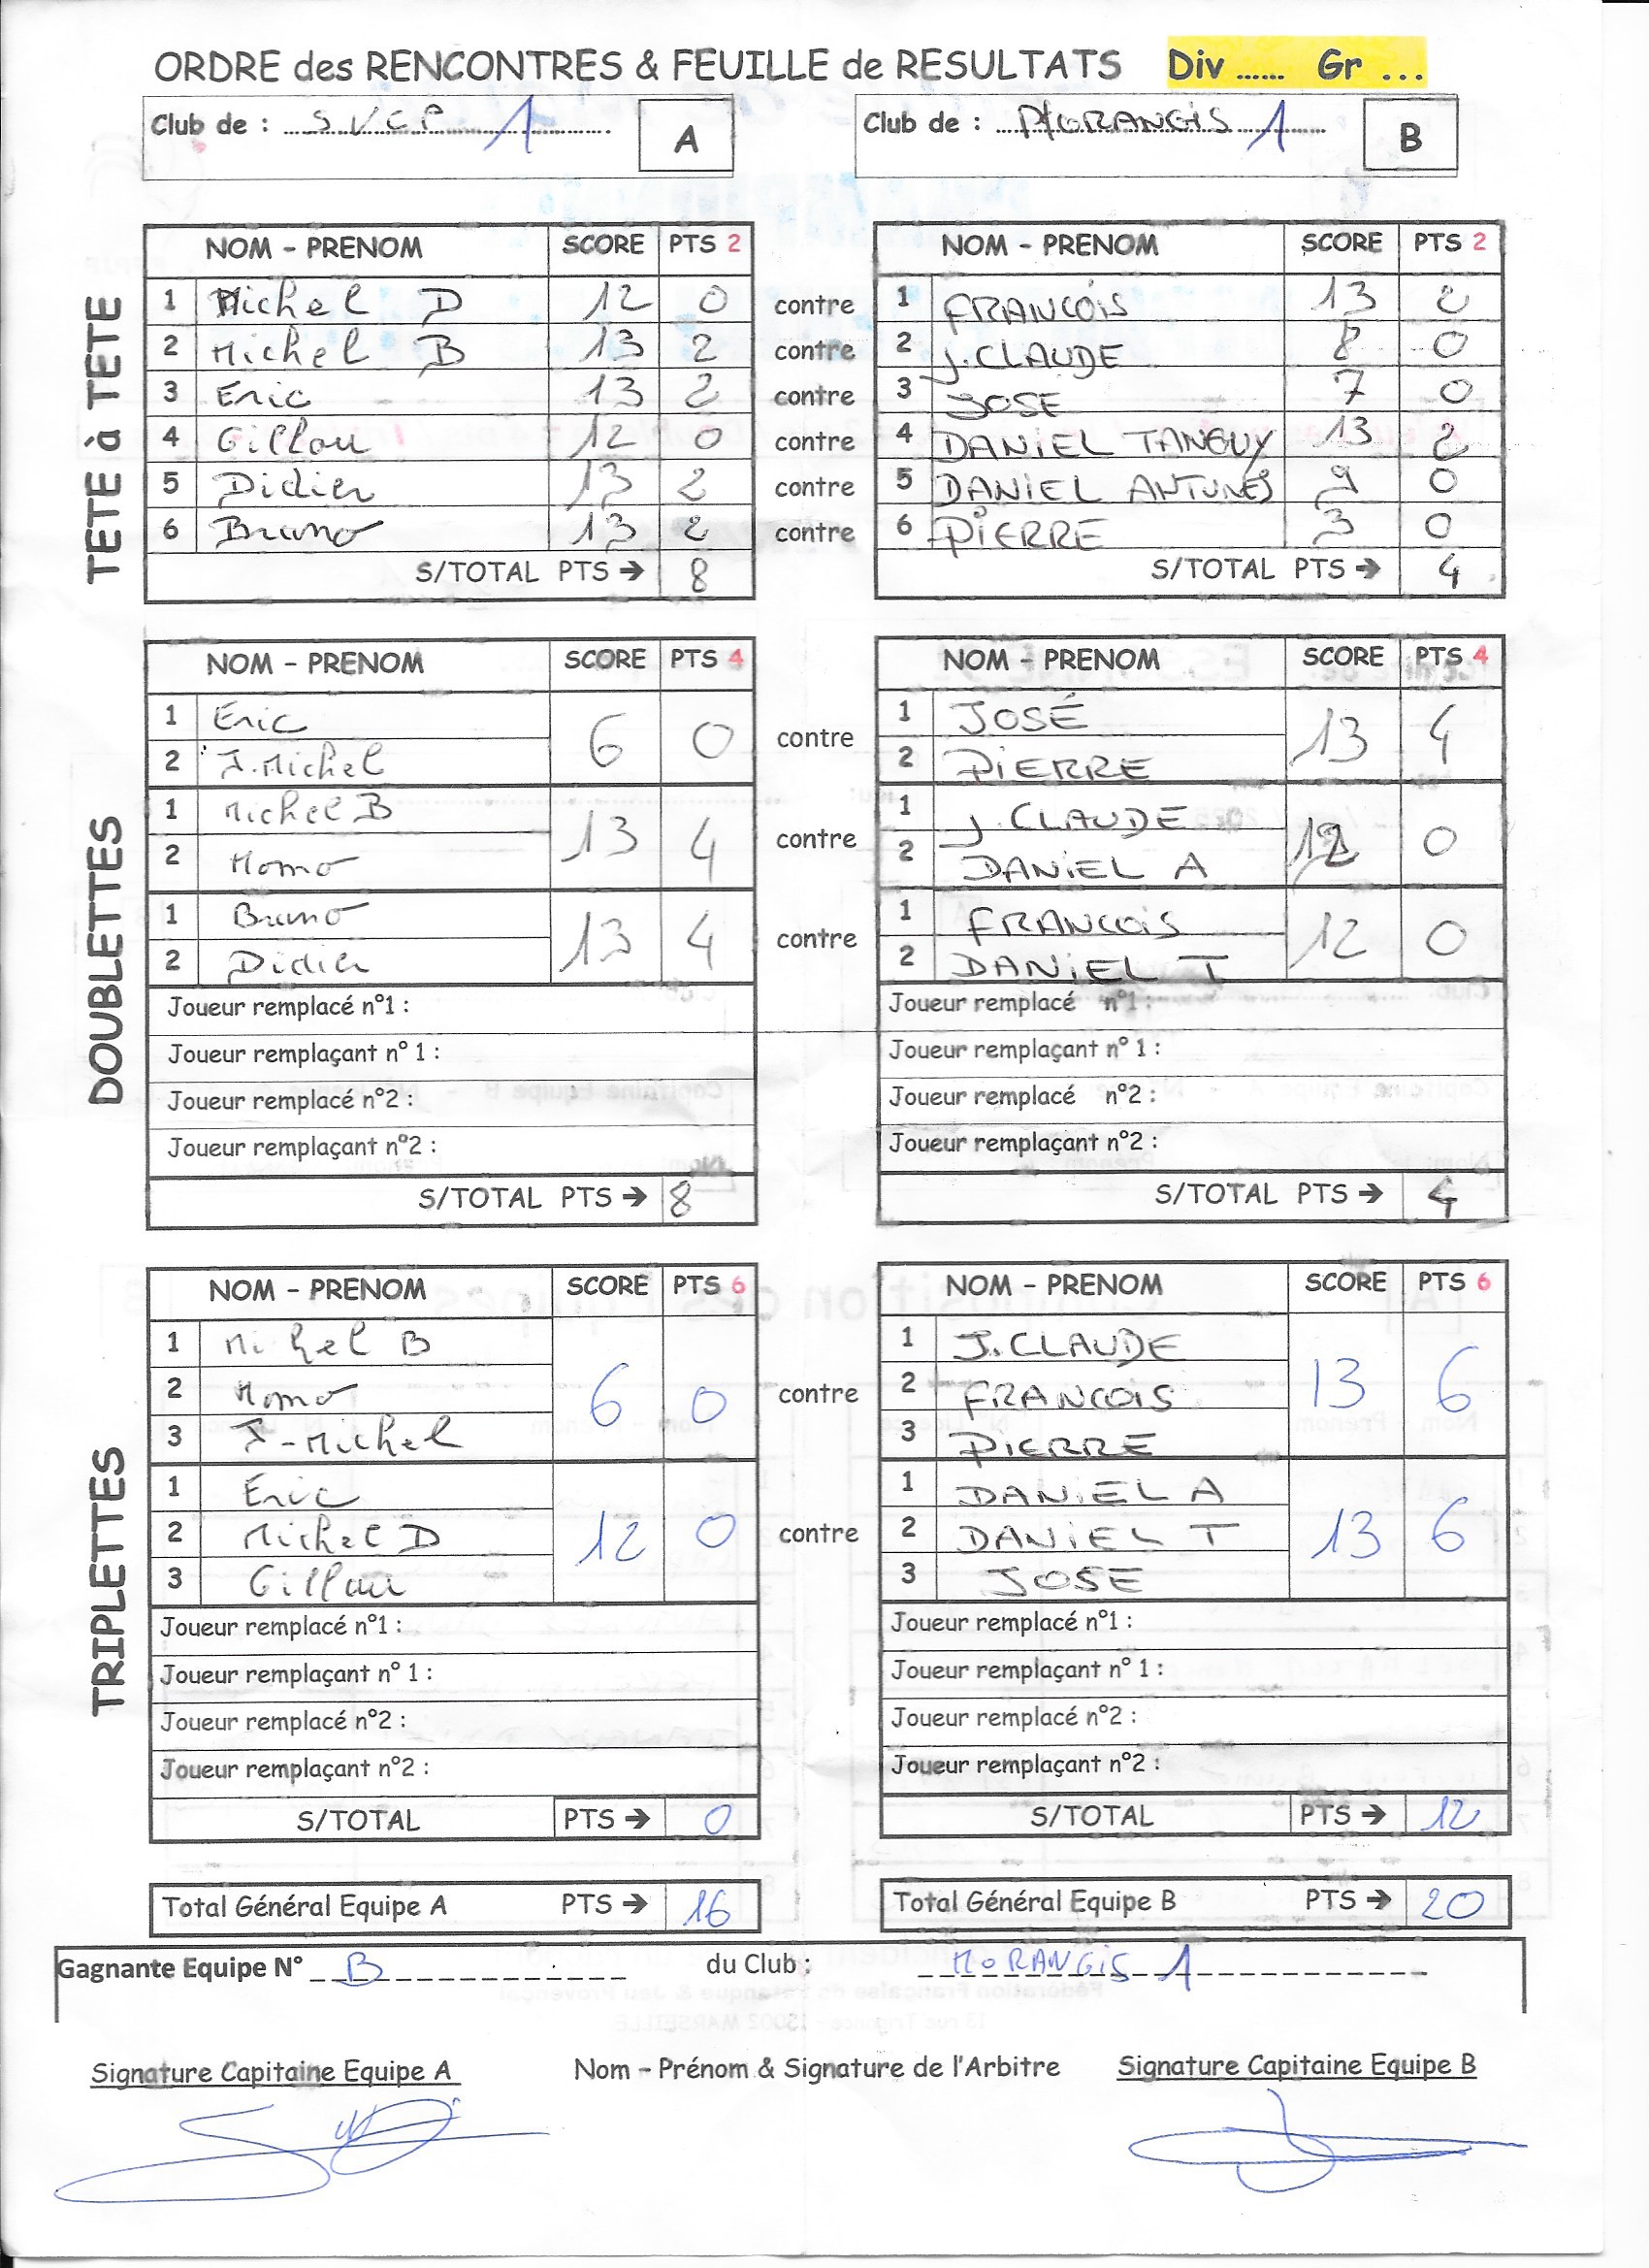 ORDRE des RENCONTRES & FEUILLE de RESULTATS Div ...... Gr ...
Club de : S.V.C.P. 1 A
Club de : MORANGIS 1 B
TETE à TETE
NOM - PRENOM SCORE PTS 2 NOM - PRENOM SCORE PTS 2
1 Michel D 12 0 contre 1 FRANCOIS 13 2
2 Michel B 13 2 contre 2 J.CLAUDE 8 0
3 Eric 13 2 contre 3 JOSE 7 0
4 Gillou 12 0 contre 4 DANIEL TANGUY 13 2
5 Didier 13 2 contre 5 DANIEL ANTUNES 9 0
6 Bruno 13 2 contre 6 PIERRE 3 0
S/TOTAL PTS → 8 S/TOTAL PTS → 4
DOUBLETTES
NOM - PRENOM SCORE PTS 4 NOM - PRENOM SCORE PTS 4
1 Eric 6 0 contre 1 JOSÉ 13 4
2 J.Michel 2 PIERRE
1 Michel B 13 4 contre 1 J.CLAUDE 12 0
2 Momo 2 DANIEL A
1 Bruno 13 4 contre 1 FRANCOIS 12 0
2 Didier 2 DANIEL T
Joueur remplacé n°1 : Joueur remplacé n°1 :
Joueur remplaçant n° 1 : Joueur remplaçant n° 1 :
Joueur remplacé n°2 : Joueur remplacé n°2 :
Joueur remplaçant n°2 : Joueur remplaçant n°2 :
S/TOTAL PTS → 8 S/TOTAL PTS → 4
TRIPLETTES
NOM - PRENOM SCORE PTS 6 NOM - PRENOM SCORE PTS 6
1 Michel B 6 0 contre 1 J.CLAUDE 13 6
2 Momo 2 FRANCOIS
3 J-Michel 3 PIERRE
1 Eric 12 0 contre 1 DANIEL A 13 6
2 Michel D 2 DANIEL T
3 Gillou 3 JOSE
Joueur remplacé n°1 : Joueur remplacé n°1 :
Joueur remplaçant n° 1 : Joueur remplaçant n° 1 :
Joueur remplacé n°2 : Joueur remplacé n°2 :
Joueur remplaçant n°2 : Joueur remplaçant n°2 :
S/TOTAL PTS → 0 S/TOTAL PTS → 12
Total Général Equipe A PTS → 16 Total Général Equipe B PTS → 20
Gagnante Equipe N° B du Club : MORANGIS 1
Signature Capitaine Equipe A Nom - Prénom & Signature de l'Arbitre Signature Capitaine Equipe B